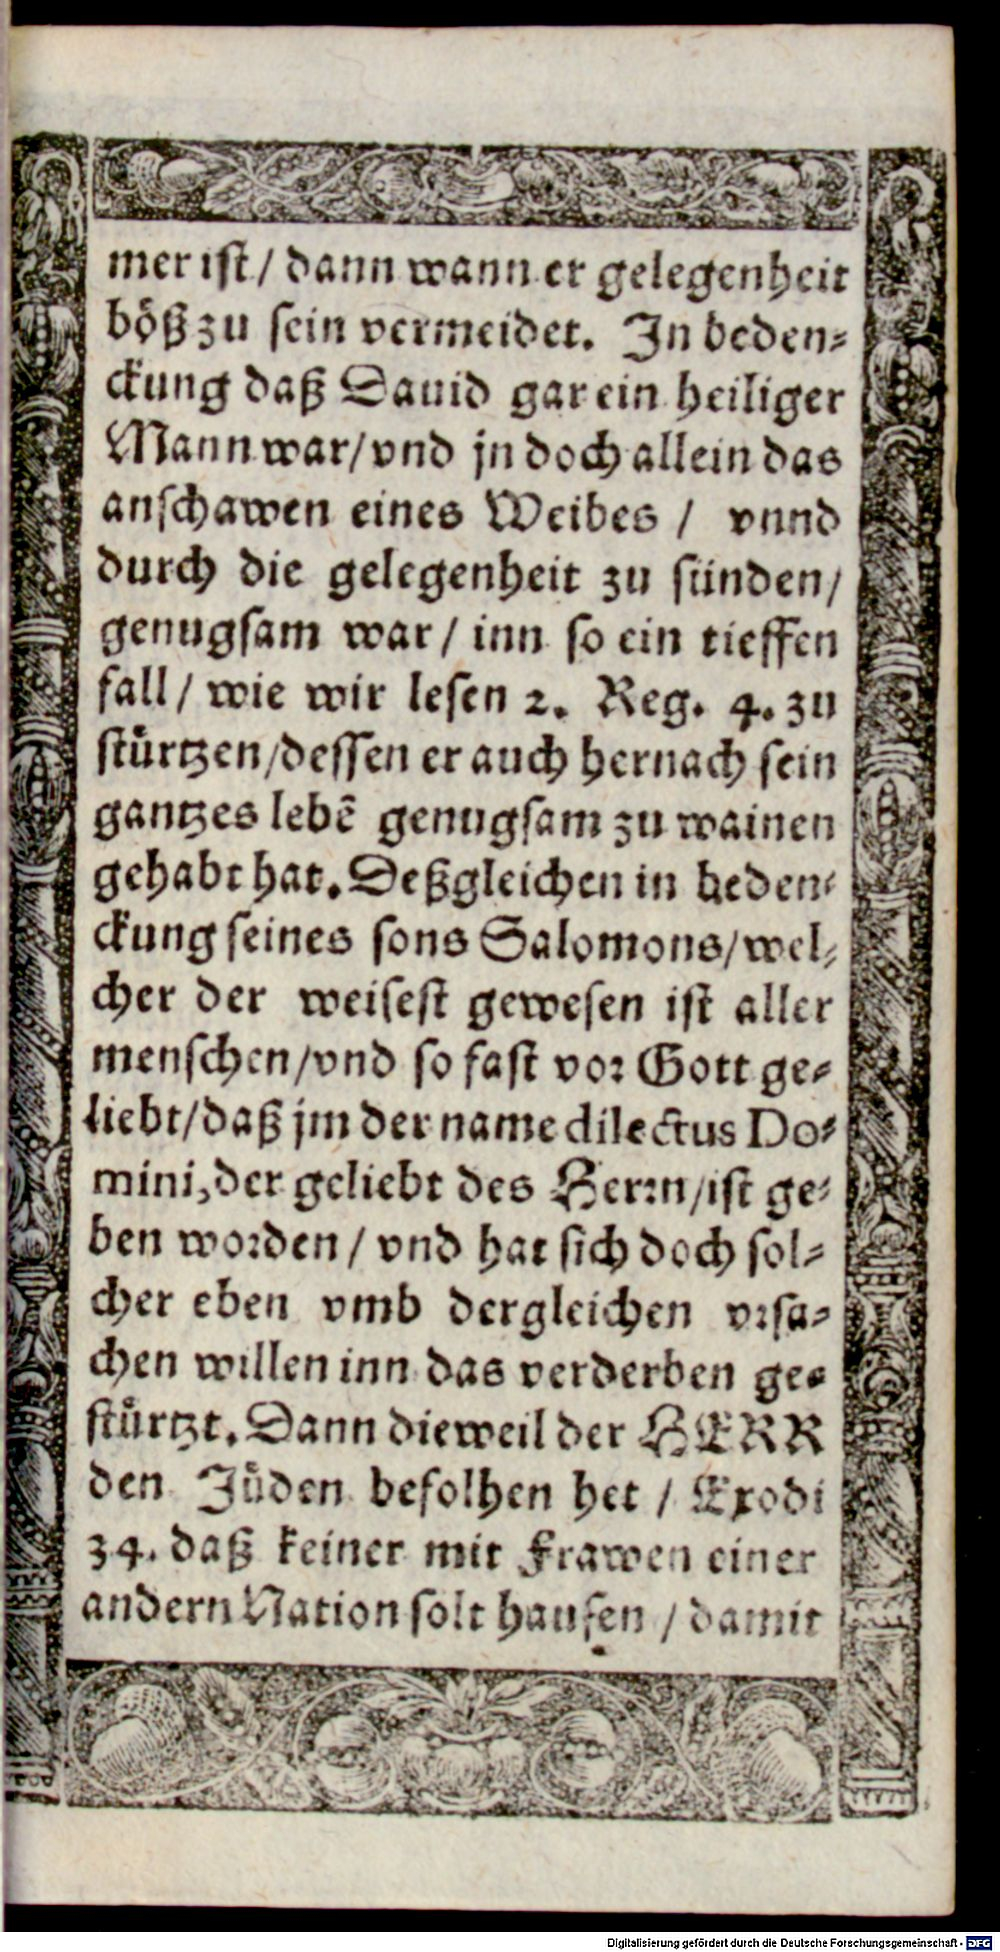 mer ist / dann wann er gelegenheit
böß zu sein vermeidet. In beden⸗
ckung daß Dauid gar ein heiliger
Mann war / vnd jn doch allein das
anschawen eines Weibes / vnnd
durch die gelegenheit zu sünden /
genugsam war / inn so ein tieffen
fall / wie wir lesen 2. Reg. 4. zu
stürtzen / dessen er auch hernach sein
gantzes lebē genugsam zu wainen
gehabt hat. Deßgleichen in beden⸗
ckung seines sons Salomons / wel⸗
cher der weisest gewesen ist aller
menschen / vnd so fast vor Gott ge⸗
liebt / daß jm der name dilectus Do⸗
mini, der geliebt des Herrn / ist ge⸗
ben worden / vnd hat sich doch sol⸗
cher eben vmb dergleichen vrsa⸗
chen willen inn das verderben ge⸗
stürtzt. Dann dieweil der HERR
den Jüden befolhen het / Exodi
34. daß keiner mit Frawen einer
andern Nation solt hausen / damit
Digitalisierung gefördert durch die Deutsche Forschungsgemeinschaft - DFG